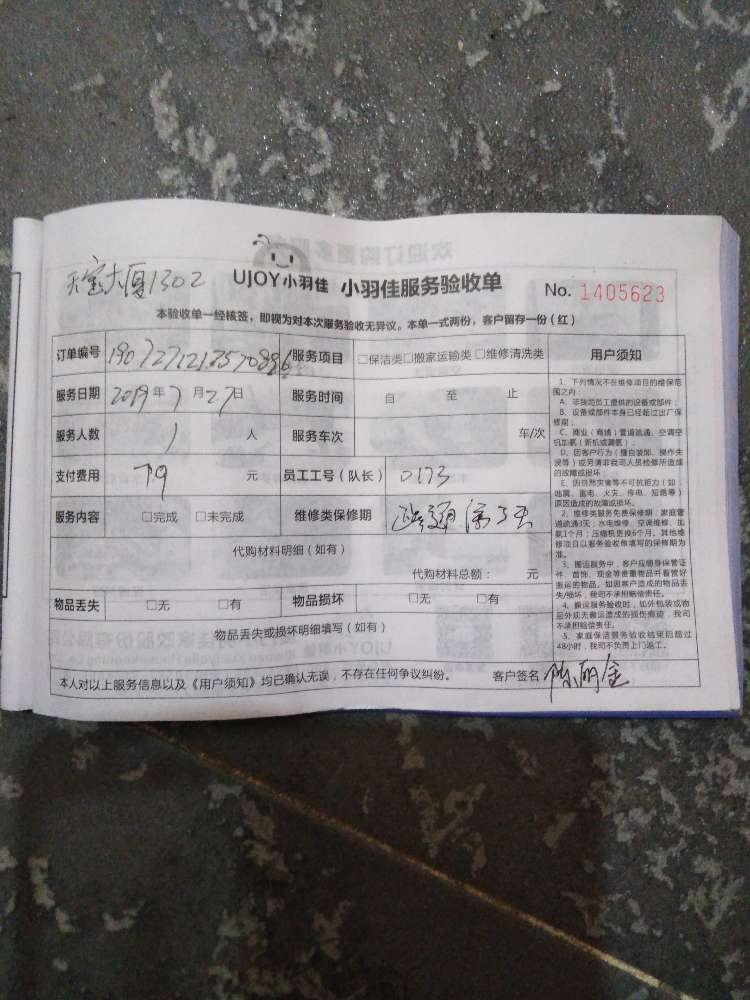 天宝大厦1302
UJOY小羽佳 小羽佳服务验收单 No. 1405623
本验收单一经核签，即视为对本次服务验收无异议。本单一式两份，客户留存一份（红）
订单编号 服务项目 □保洁类□搬家运输类□维修清洗类 用户须知
服务日期 2019年7月27日 服务时间 自 至 止
服务人数 1 人 服务车次 车/次
支付费用 79 元 员工工号（队长） 0173
服务内容 □完成 □未完成 维修类保修期
代购材料明细（如有）
代购材料总额： 元
物品丢失 □无 □有 物品损坏 □无 □有
物品丢失或损坏明细填写（如有）
本人对以上服务信息以及《用户须知》均已确认无误，不存在任何争议纠纷。 客户签名
1、下列情况不在维修项目的增保范
围之内：
A、非我司员工提供的设备或部件；
B、设备或部件本身已经超过出厂保
修期；
C、商业（商铺）管道疏通、空调空
机加氨（新机或漏氨）；
D、因客户行为（擅自装卸、操作失
误等）或另请非我司人员检修所造成
的故障或损坏；
E、因自然灾害等不可抗能力（如
地震、雷电、火灾、停电、短路等）
原因造成的故障或损坏。
2、维修类服务免费保修期：家庭管
道疏通3天；水电维修、空调维修、加
氨1个月；压缩机更换6个月。其他维
修项目以服务验收单填写的保修期为
准。
3、搬运服务中，客户应随身保管证
件、首饰、现金等贵重物品并看管好
搬运的物品。如因客户造成的物品丢
失/损坏，我司不承担赔偿责任。
4、搬运服务验收时，如外包装或物
品外观无搬运造成的损伤痕迹，我司
不承担赔偿责任。
5、家庭保洁服务验收结束后超过
48小时，我司不负责上门返工。